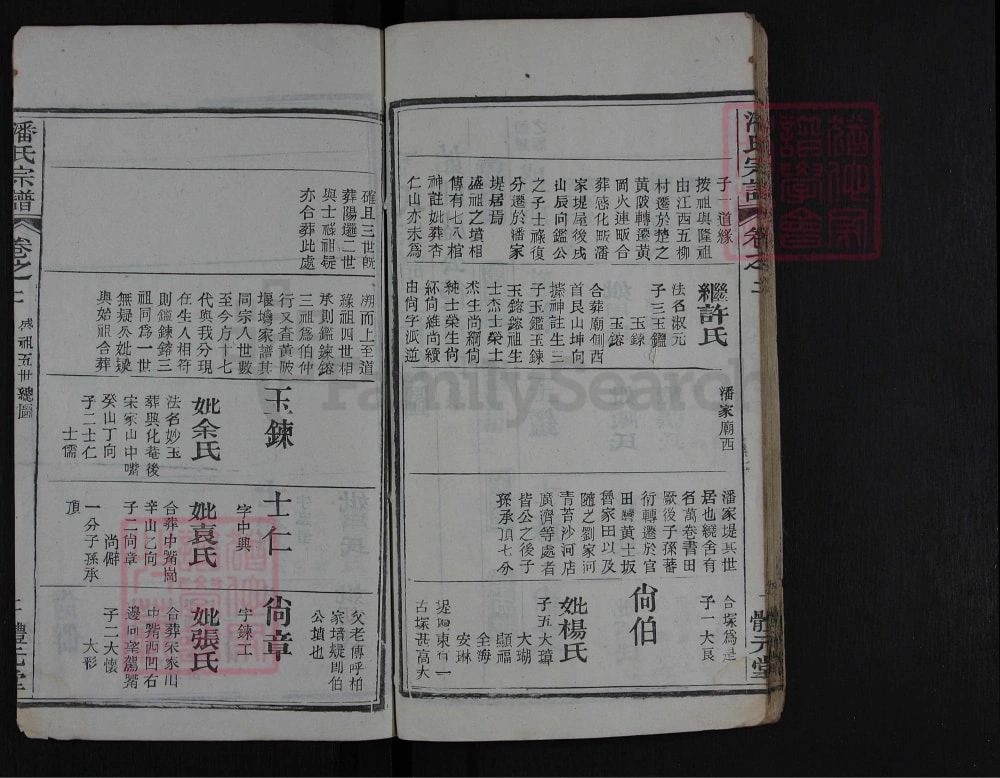 潘氏宗譜
卷之二
一
體元堂
子一道緣
按祖與隆祖
由江西五柳
村遷於楚之
黃陂轉遷黃
岡火連畈合
葬感化畈潘
家堤屋後戌
山辰向鑑公
之子士祿復
分遷於潘家
堤居焉
盛祖之墳相
傳有七八棺
神註妣葬杏
仁山亦未為
繼許氏
法名淑元
子三玉鑑
玉錄
玉鎔
合葬廟側西
首艮山坤向
據神註生三
子玉鑑玉鍊
玉鎔鎔祖生
士杰士榮士
杰生尚綱尚
純士榮生尚
絅尚維尚續
由尚字派逆
潘家廟西
潘家堤其世
居也繞舍有
名萬卷書田
厥後子孫蕃
衍轉遷於官
田灣黃土坂
魯家田以及
隨之劉家河
青苔沙河店
廣濟等處者
皆公之後子
孫承頂七分
合塚為是
子一大良
尙伯
妣楊氏
子五大璋
大瑚
顯福
全海
安琳
堤廟東有一
古塚甚高大
潘氏宗譜
卷之二
盛祖五世總圖
體元堂
確且三世旣
葬陽邏二世
與士祿祖疑
亦合葬此處
溯而上至道
緣祖四世相
承則鑑鍊鎔
三祖為伯仲
行又查黃陂
堰塆家譜其
同宗八世數
至今方十七
代與我分現
在生人相符
則鑑鍊鎔三
祖同為一世
無疑矣妣梁
與始祖合葬
玉鍊
妣余氏
法名妙玉
葬興化菴後
宋家山中嘴
癸山丁向
子二士仁
士儒
士仁
字中興
妣袁氏
合葬中嘴崗
辛山乙向
子二尚章
尚僻
一分子孫承
頂
父老傳呼柏
家墳疑即伯
公墳也
尙章
字鍊工
妣張氏
合葬宋家山
中嘴西凹右
邊丙葉駕嘴
子二大懷
大彩